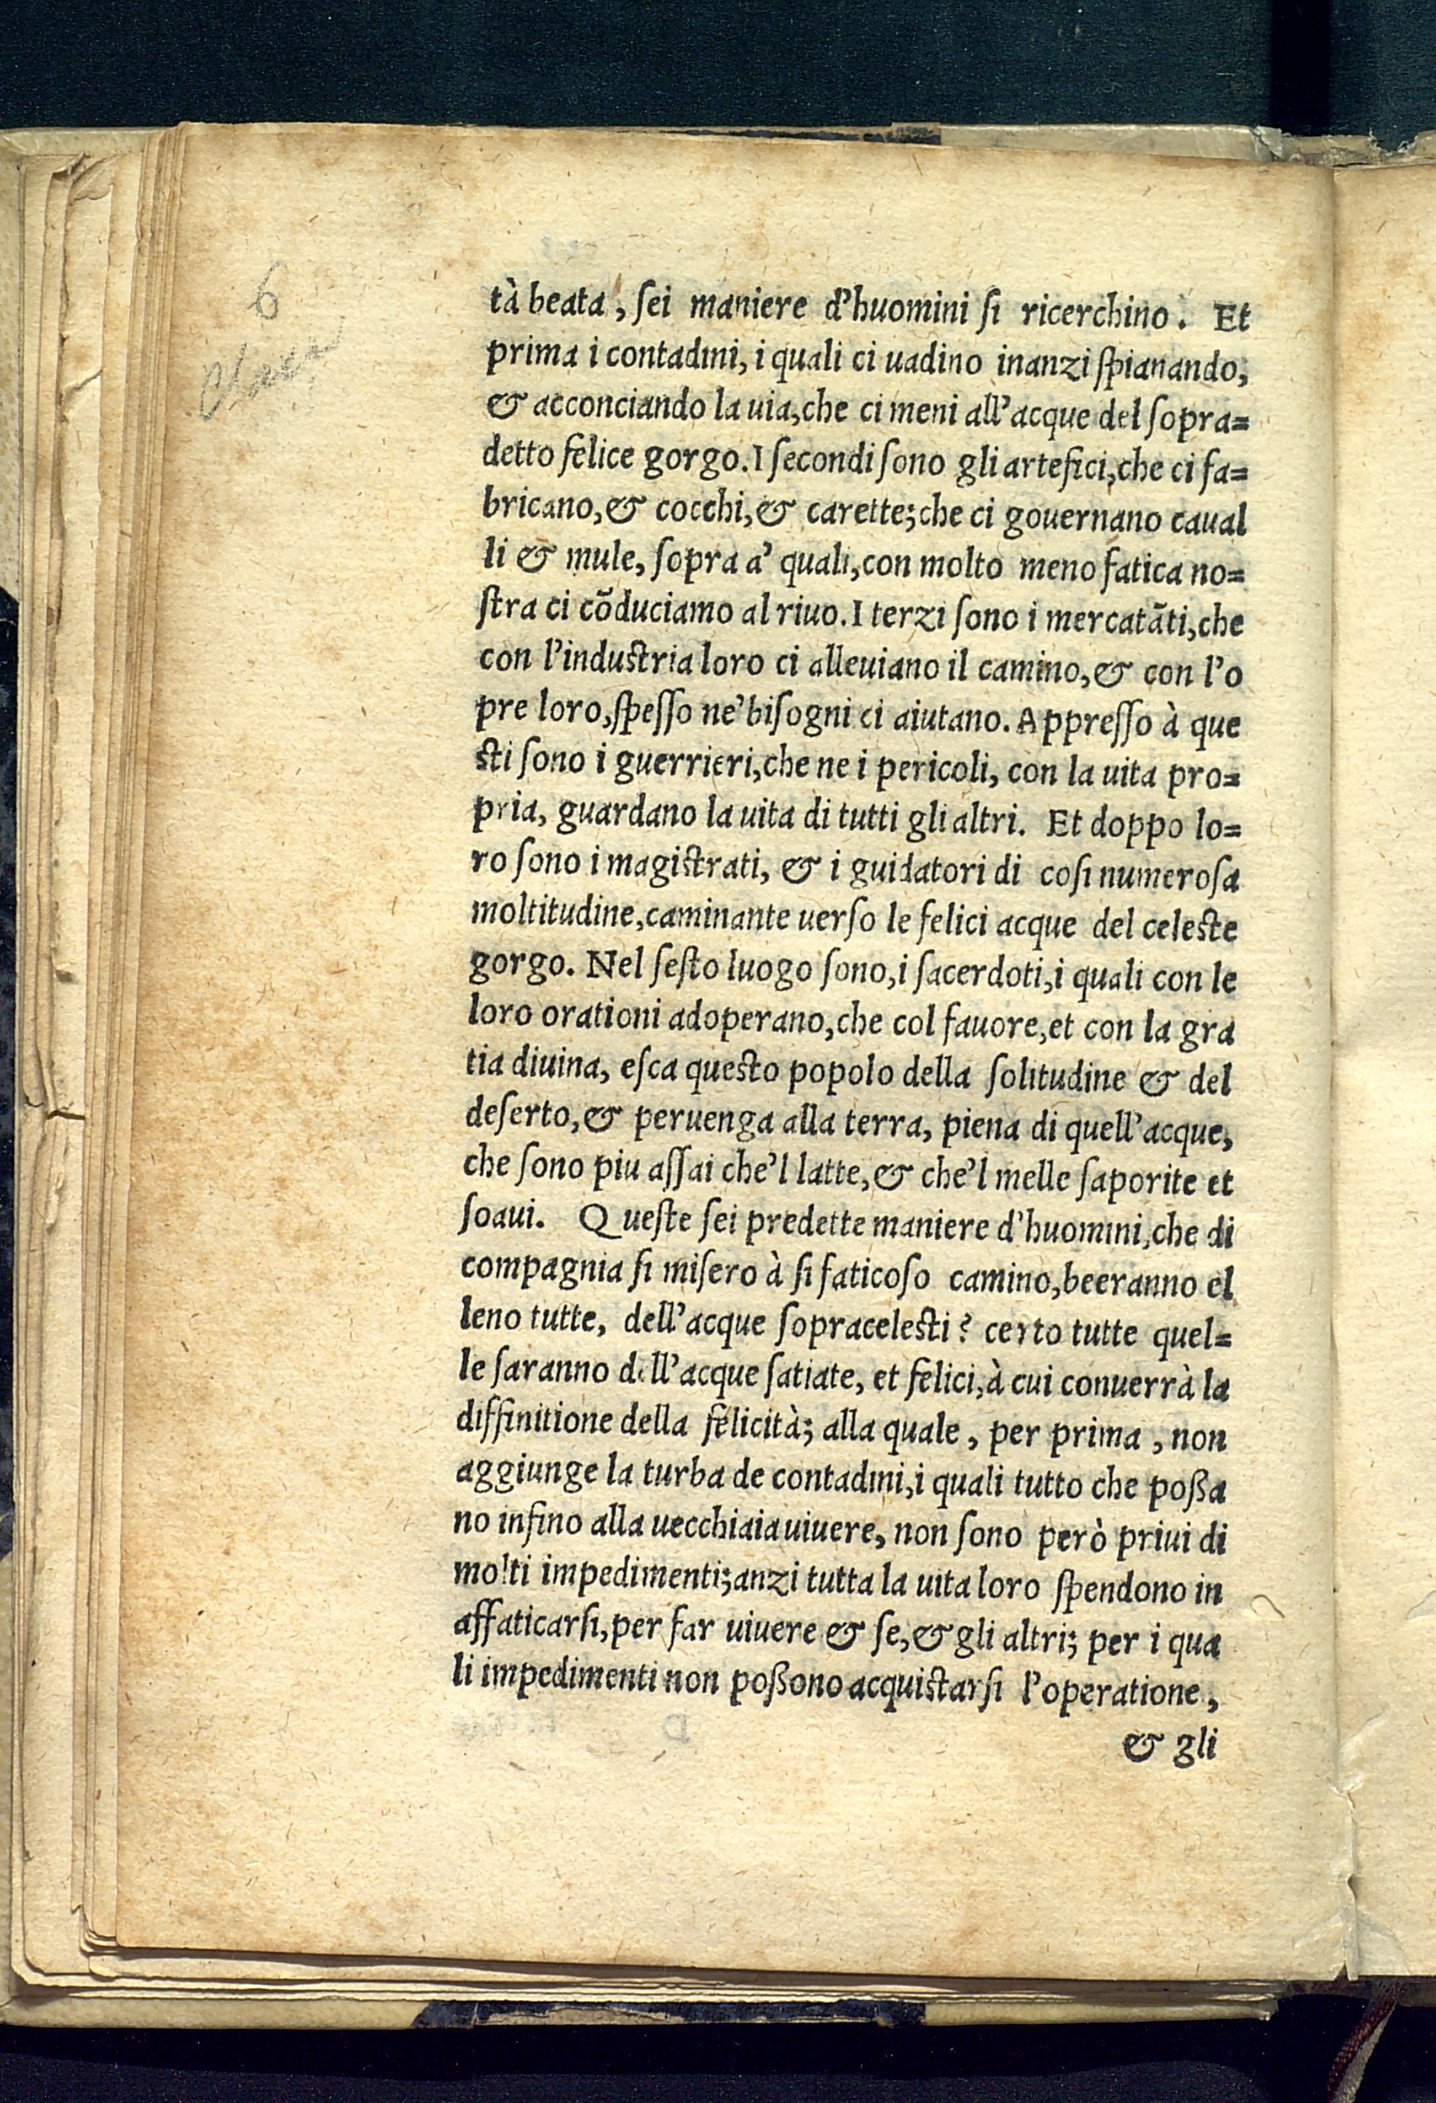 6
tà beata, ſei maniere d'huomini ſi ricerchino. Et
prima i contadini, i quali ci uadino inanzi ſpianando,
& acconciando la uia, che ci meni all'acque del ſopra=
detto felice gorgo. I ſecondi ſono gli artefici, che ci fa=
bricano, & cocchi, & carette; che ci gouernano caual
li & mule, ſopra a' quali, con molto meno fatica no=
ſtra ci cõduciamo al riuo. I terzi ſono i mercatãti, che
con l'induſtria loro ci alleuiano il camino, & con l'o
pre loro, ſpeſſo ne' biſogni ci aiutano. Appreſſo à que
ſti ſono i guerrieri, che ne i pericoli, con la uita pro=
pria, guardano la uita di tutti gli altri. Et doppo lo=
ro ſono i magiſtrati, & i guidatori di coſi numeroſa
moltitudine, caminante uerſo le felici acque del celeſte
gorgo. Nel ſeſto luogo ſono, i ſacerdoti, i quali con le
loro orationi adoperano, che col fauore, et con la gra
tia diuina, eſca queſto popolo della ſolitudine & del
deſerto, & peruenga alla terra, piena di quell'acque,
che ſono piu aſſai che'l latte, & che'l melle ſaporite et
ſoaui. Queſte ſei predette maniere d'huomini, che di
compagnia ſi miſero à ſi faticoſo camino, beeranno el
leno tutte, dell'acque ſopraceleſti? certo tutte quel=
le ſaranno dell'acque ſatiate, et felici, à cui conuerrà la
diffinitione della felicità; alla quale, per prima, non
aggiunge la turba de contadini, i quali tutto che poßa
no infino alla uecchiaia uiuere, non ſono però priui di
molti impedimenti; anzi tutta la uita loro ſpendono in
affaticarſi, per far uiuere & ſe, & gli altri; per i qua
li impedimenti non poßono acquiſtarſi l'operatione,
& gli